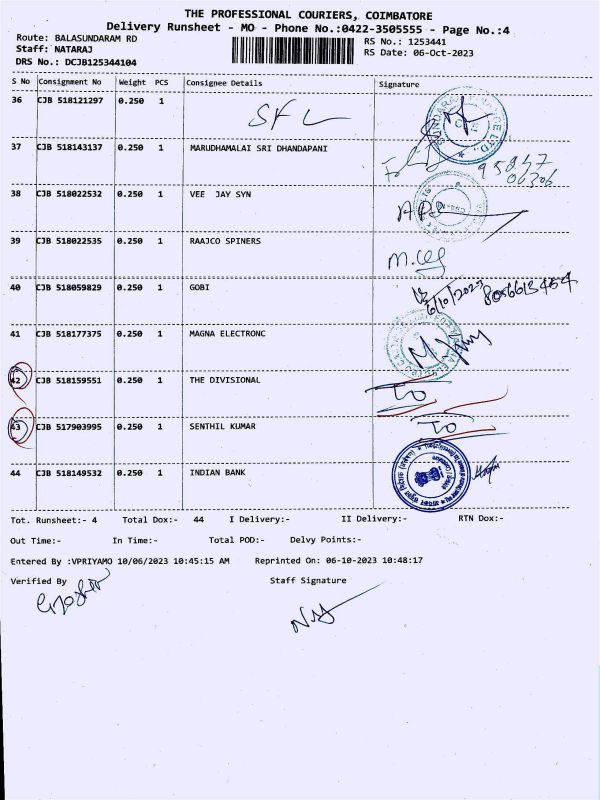 THE PROFESSIONAL COURIERS, COIMBATORE
Delivery Runsheet - MO - Phone No.:0422-3505555 - Page No.:4
Route: BALASUNDARAM RD RS No.: 1253441
Staff: NATARAJ RS Date: 06-Oct-2023
DRS No.: DCJB125344104
S No Consignment No Weight PCS Consignee Details Signature
36 CJB 518121297 0.250 1 SFL
37 CJB 518143137 0.250 1 MARUDHAMALAI SRI DHANDAPANI
38 CJB 518022532 0.250 1 VEE JAY SYN APS
39 CJB 518022535 0.250 1 RAAJCO SPINERS
40 CJB 518059829 0.250 1 GOBI 6/10/2023 8056613454
41 CJB 518177375 0.250 1 MAGNA ELECTRONC
42 CJB 518159551 0.250 1 THE DIVISIONAL TO
43 CJB 517903995 0.250 1 SENTHIL KUMAR TO
44 CJB 518149532 0.250 1 INDIAN BANK
Tot. Runsheet:- 4 Total Dox:- 44 I Delivery:- II Delivery:- RTN Dox:-
Out Time:- In Time:- Total POD:- Delvy Points:-
Entered By :VPRIYAMO 10/06/2023 10:45:15 AM Reprinted On: 06-10-2023 10:48:17
Verified By Staff Signature